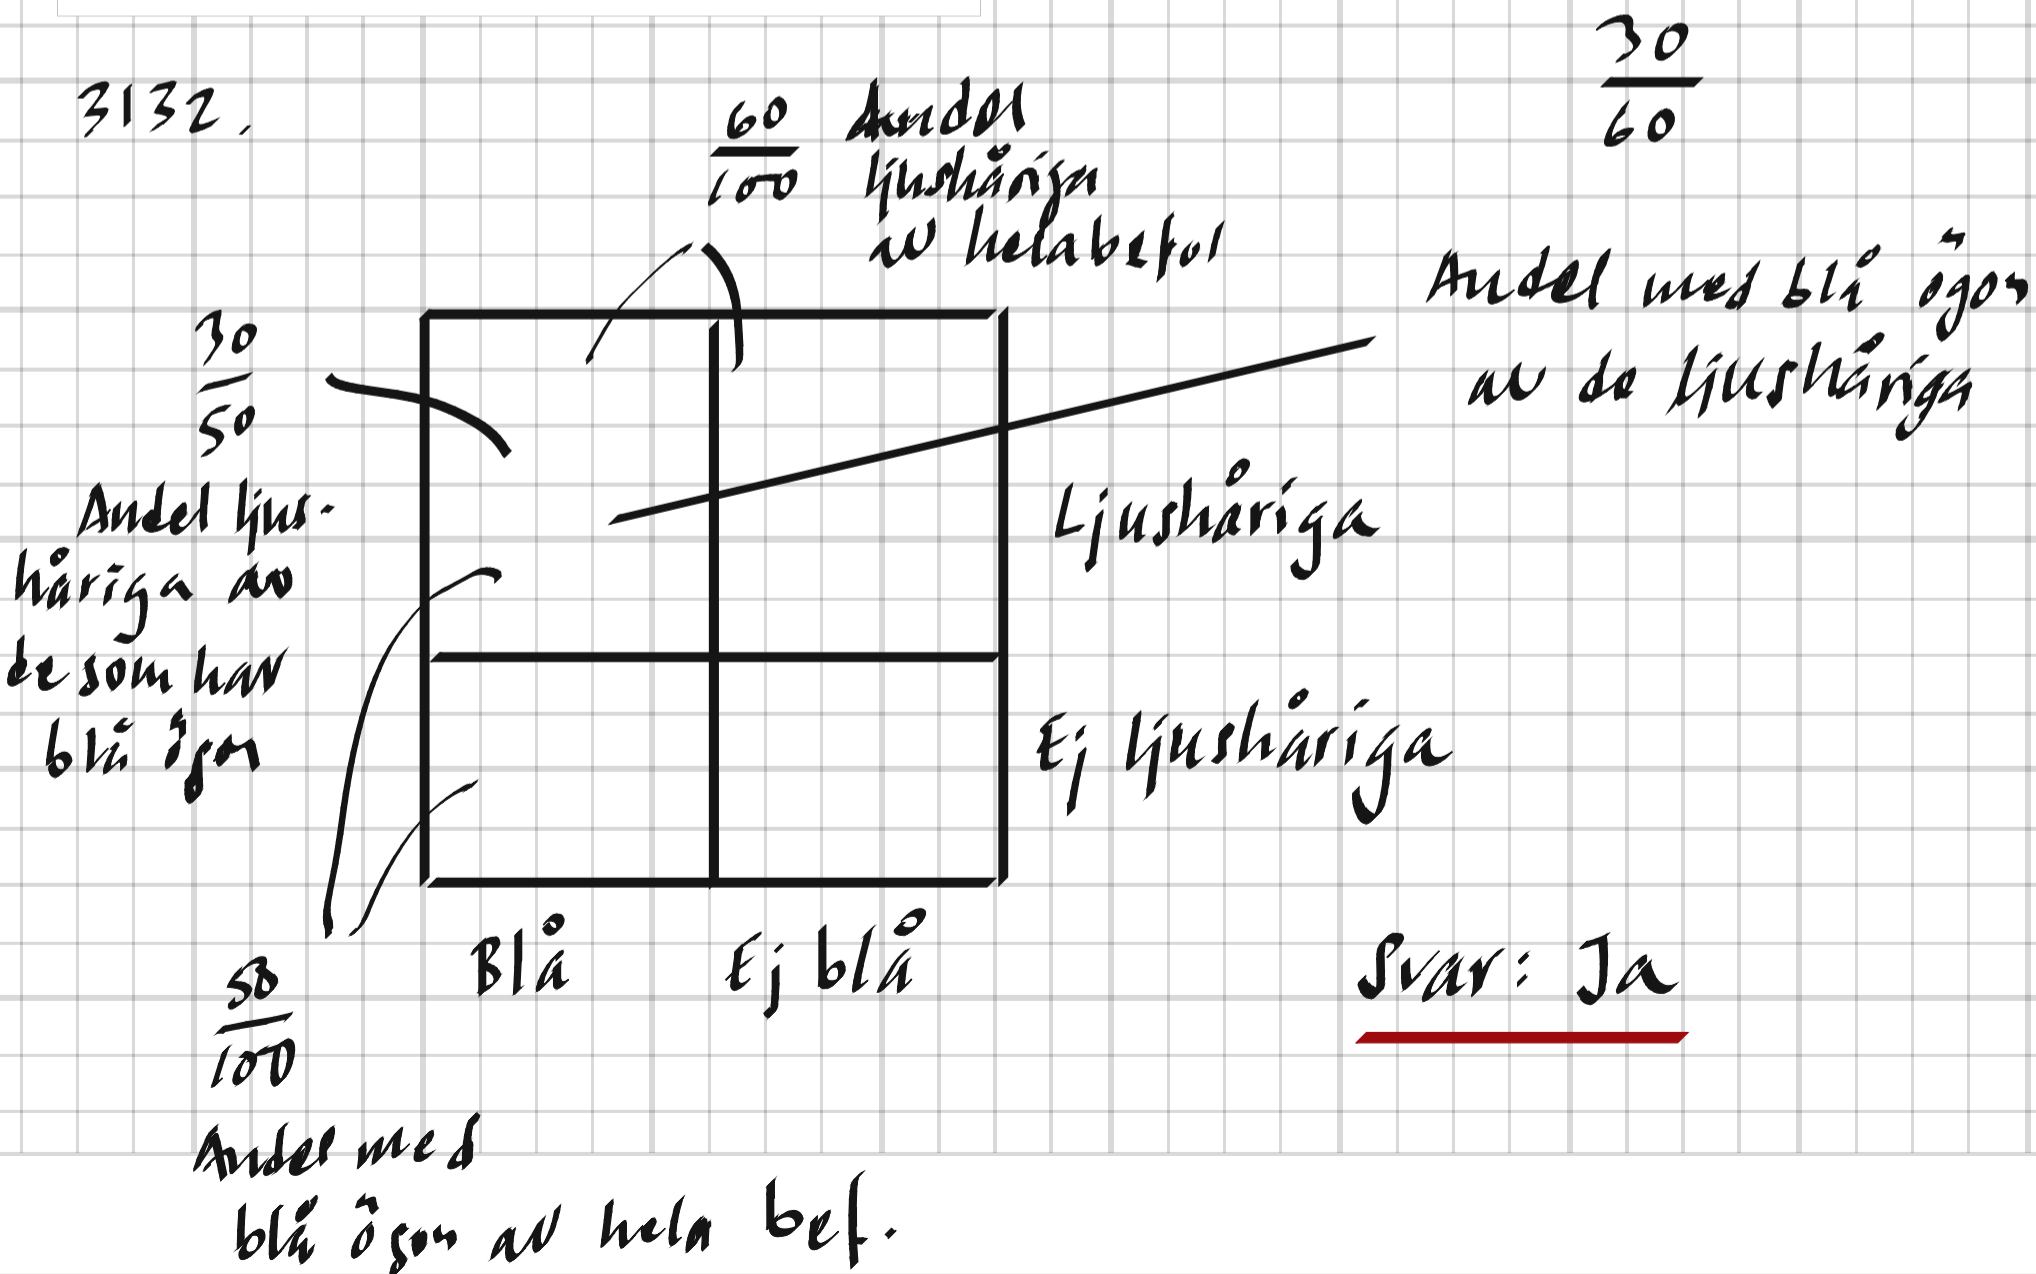 3132.
60
100
Andel
ljushåriga
av hela befol
30
60
Andel med blå ögon
av de ljushåriga
30
50
Andel ljus-
håriga av
de som har
blå ögon
Ljushåriga
Ej ljushåriga
Blå
Ej blå
50
100
Andel med
blå ögon av hela bef.
Svar: Ja